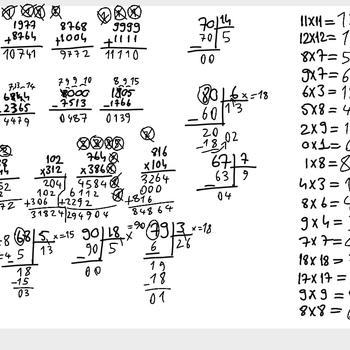 1977
+8764
10741
8768
+1004
9772
9999
+1111
11110
70 14
-70 5
00
7 13 14
6844
-2365
4479
7 9 9 10
8000
-7513
0487
8 9 15
1805
-1766
0139
80 6 x=18
-60 13
20
-18 02
67 7
-63 9
04
102
x312
204
102
+306
31824
764
x386
4584
6112
+2292
294904
816
x104
3264
000
+816
84864
68 5 x=15
-5 13
18
-15
03
90 18 x=90
-90 5
00
79 3 x=18
-6 26
19
-18
01
11x11=
12x12=
8x7=
9x7=
6x3=
5x8=
2x9=
0x1=
1x8=
4x3=
8x6=
9x4=
7x7=
18x18=
17x17=
9x9=
8x8=